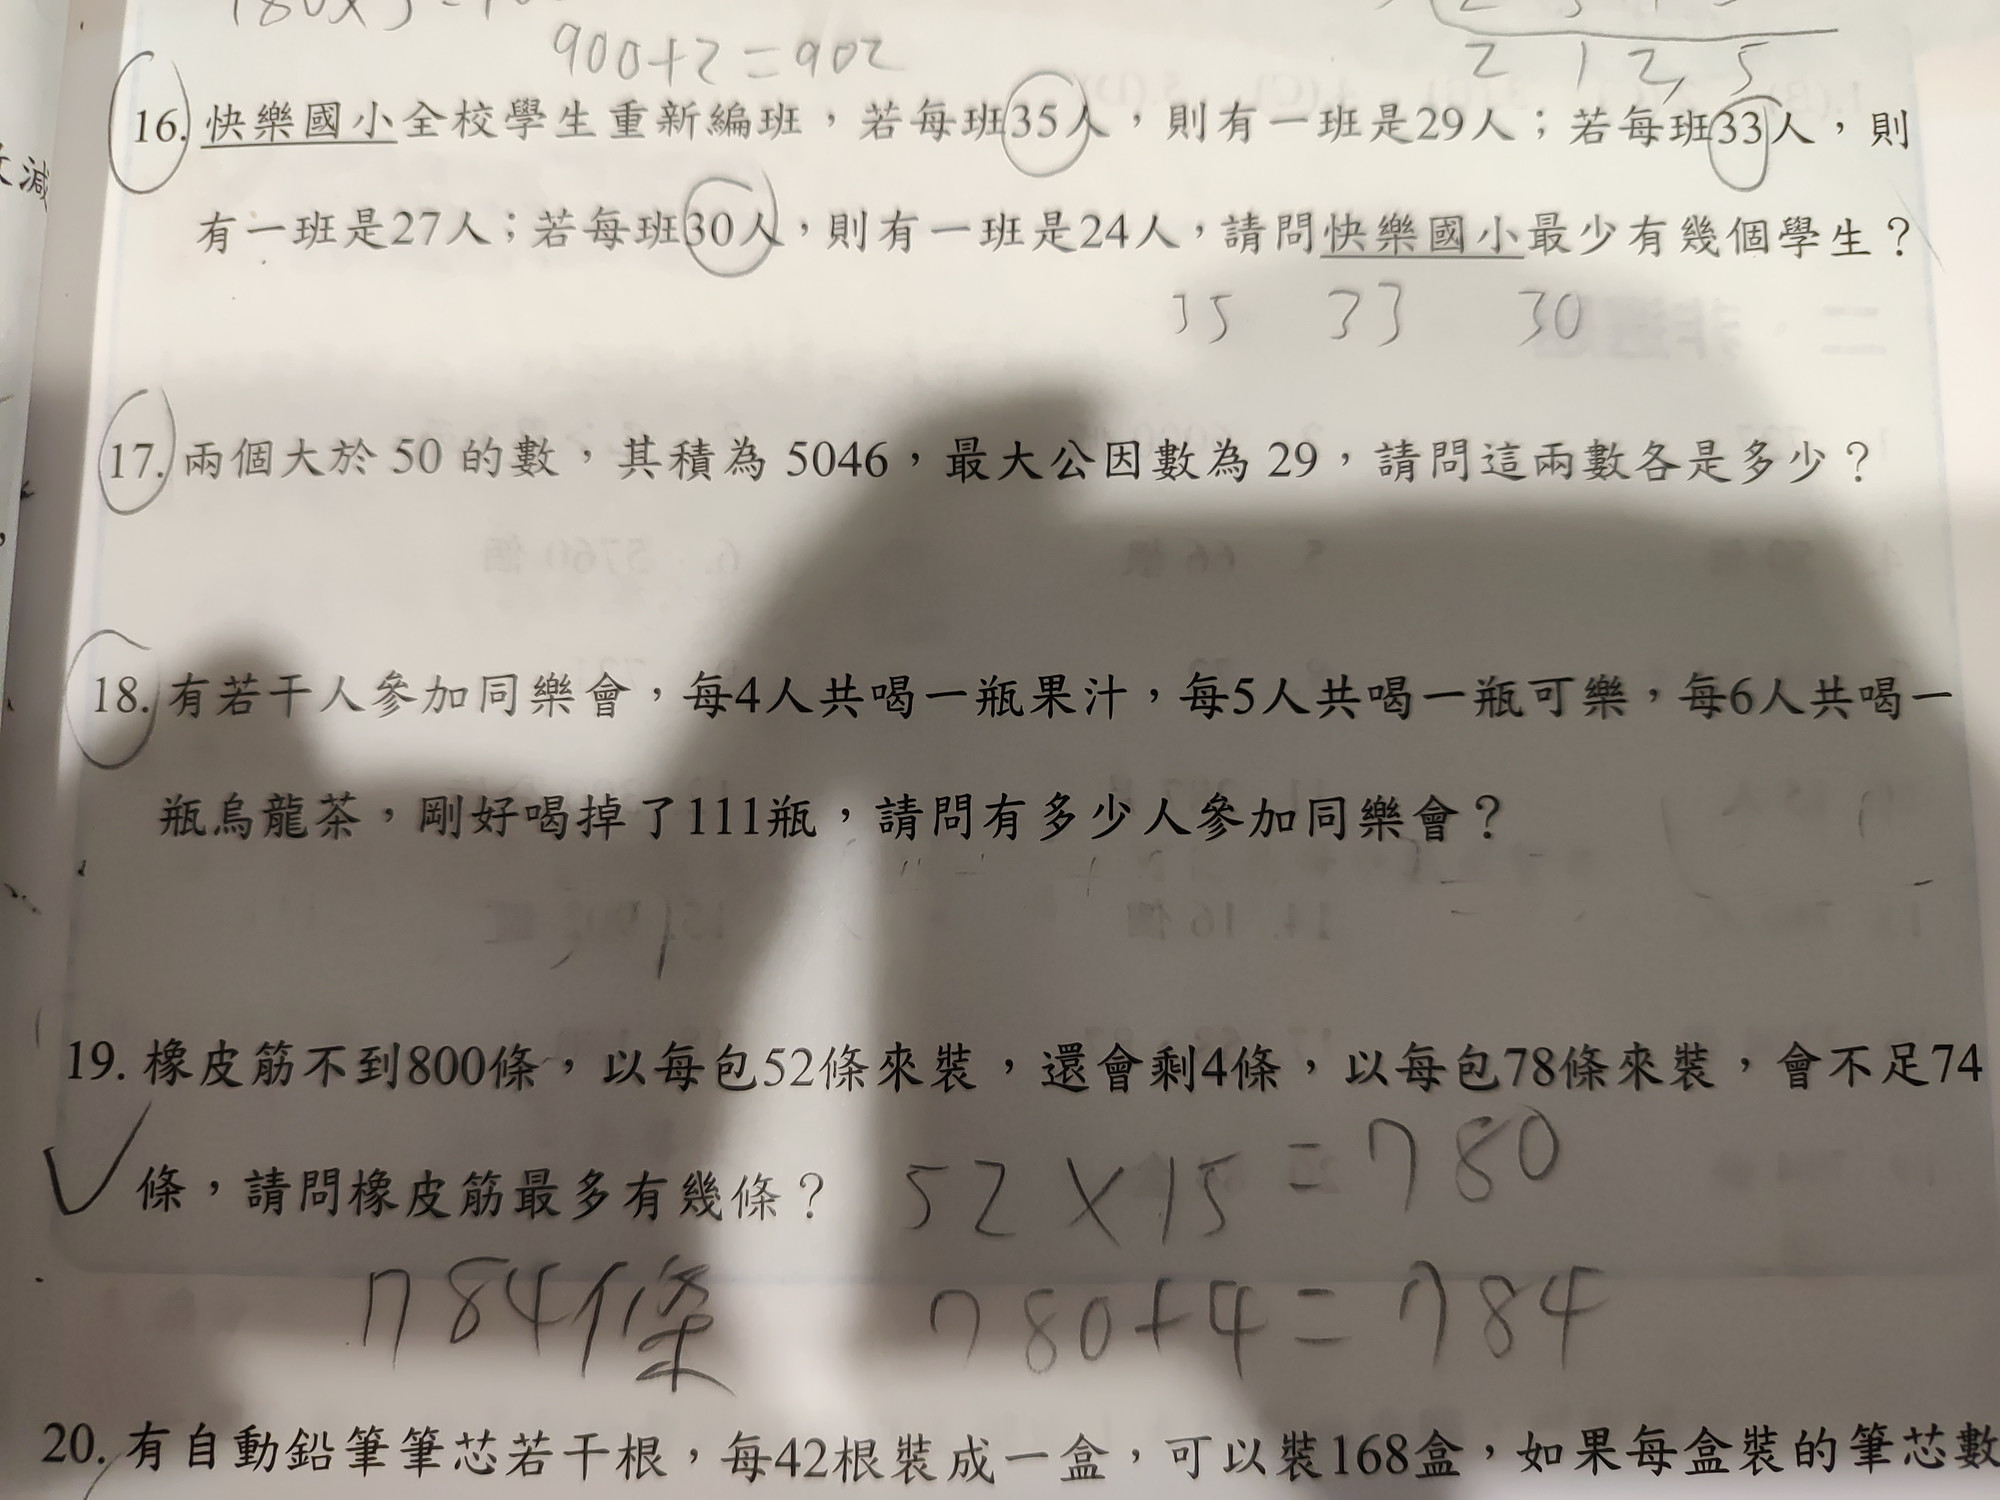 900+2=902
2 1 2, 5
16. 快樂國小全校學生重新編班，若每班35人，則有一班是29人；若每班33人，則
有一班是27人；若每班30人，則有一班是24人，請問快樂國小最少有幾個學生？
35 33 30
17. 兩個大於 50 的數，其積為 5046，最大公因數為 29，請問這兩數各是多少？
18. 有若干人參加同樂會，每4人共喝一瓶果汁，每5人共喝一瓶可樂，每6人共喝一
瓶烏龍茶，剛好喝掉了111瓶，請問有多少人參加同樂會？
19. 橡皮筋不到800條，以每包52條來裝，還會剩4條，以每包78條來裝，會不足74
條，請問橡皮筋最多有幾條？ 52×15=780
784條 780+4=784
20. 有自動鉛筆筆芯若干根，每42根裝成一盒，可以裝168盒，如果每盒裝的筆芯數